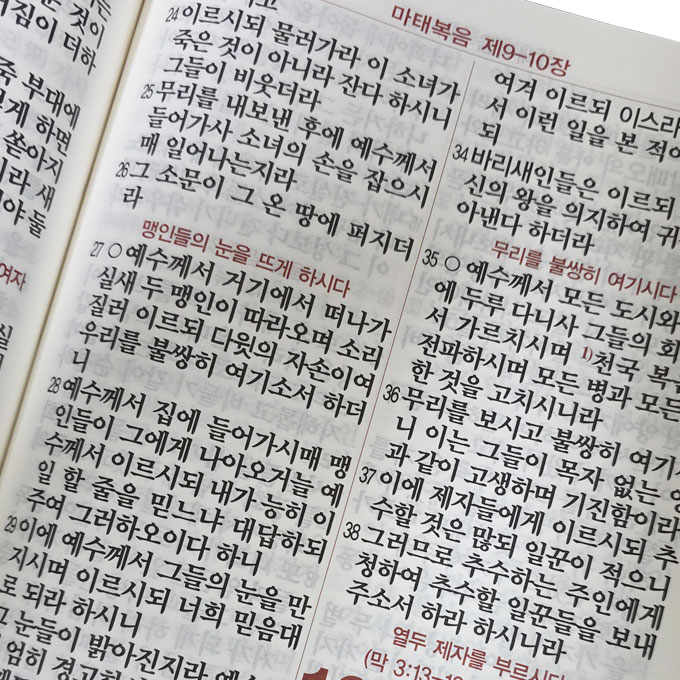 마태복음 제9-10장
24 이르시되 물러가라 이 소녀가
죽은 것이 아니라 잔다 하시니
그들이 비웃더라
25 무리를 내보낸 후에 예수께서
들어가사 소녀의 손을 잡으시
매 일어나는지라
26 그 소문이 그 온 땅에 퍼지더
라
맹인들의 눈을 뜨게 하시다
27 ○ 예수께서 거기에서 떠나가
실새 두 맹인이 따라오며 소리
질러 이르되 다윗의 자손이여
우리를 불쌍히 여기소서 하더
니
28 예수께서 집에 들어가시매 맹
인들이 그에게 나아오거늘 예
수께서 이르시되 내가 능히 이
일 할 줄을 믿느냐 대답하되
주여 그러하오이다 하니
29 이에 예수께서 그들의 눈을 만
지시며 이르시되 너희 믿음대
로 되라 하시니
눈들이 밝아진지라
엄히
여겨 이르되
서 이런 일을 본 적이
되
34 바리새인들은 이르되
신의 왕을 의지하여
아낸다 하더라
무리를 불쌍히 여기시다
35 ○ 예수께서 모든 도시와
에 두루 다니사 그들의 회
서 가르치시며 1)천국 복
전파하시며 모든 병과 모든
한 것을 고치시니라
36 무리를 보시고 불쌍히 여기
니 이는 그들이 목자 없는
과 같이 고생하며 기진함이라
37 이에 제자들에게 이르시되 추
수할 것은 많되 일꾼이 적으니
38 그러므로 추수하는 주인에게
청하여 추수할 일꾼들을 보내
주소서 하라 하시니라
열두 제자를 부르시다
(막 3:13-